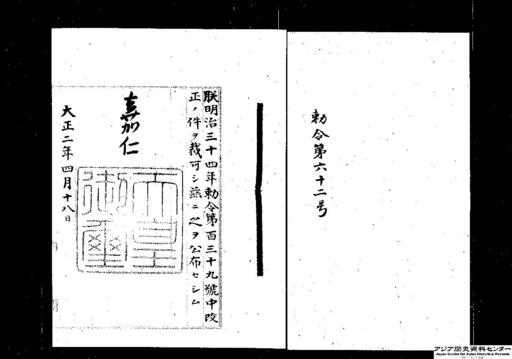 勅令第六十二号
朕明治三十四年勅令第百三十九號中改
正ノ件ヲ裁可シ茲ニ之ヲ公布セシム
嘉仁
天皇御璽
大正二年四月十八日
アジア歴史資料センター
Japan Center for Asian Historical Records